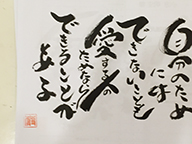 自分のため
には
できないことも
愛する人の
ためなら
できることが
ある